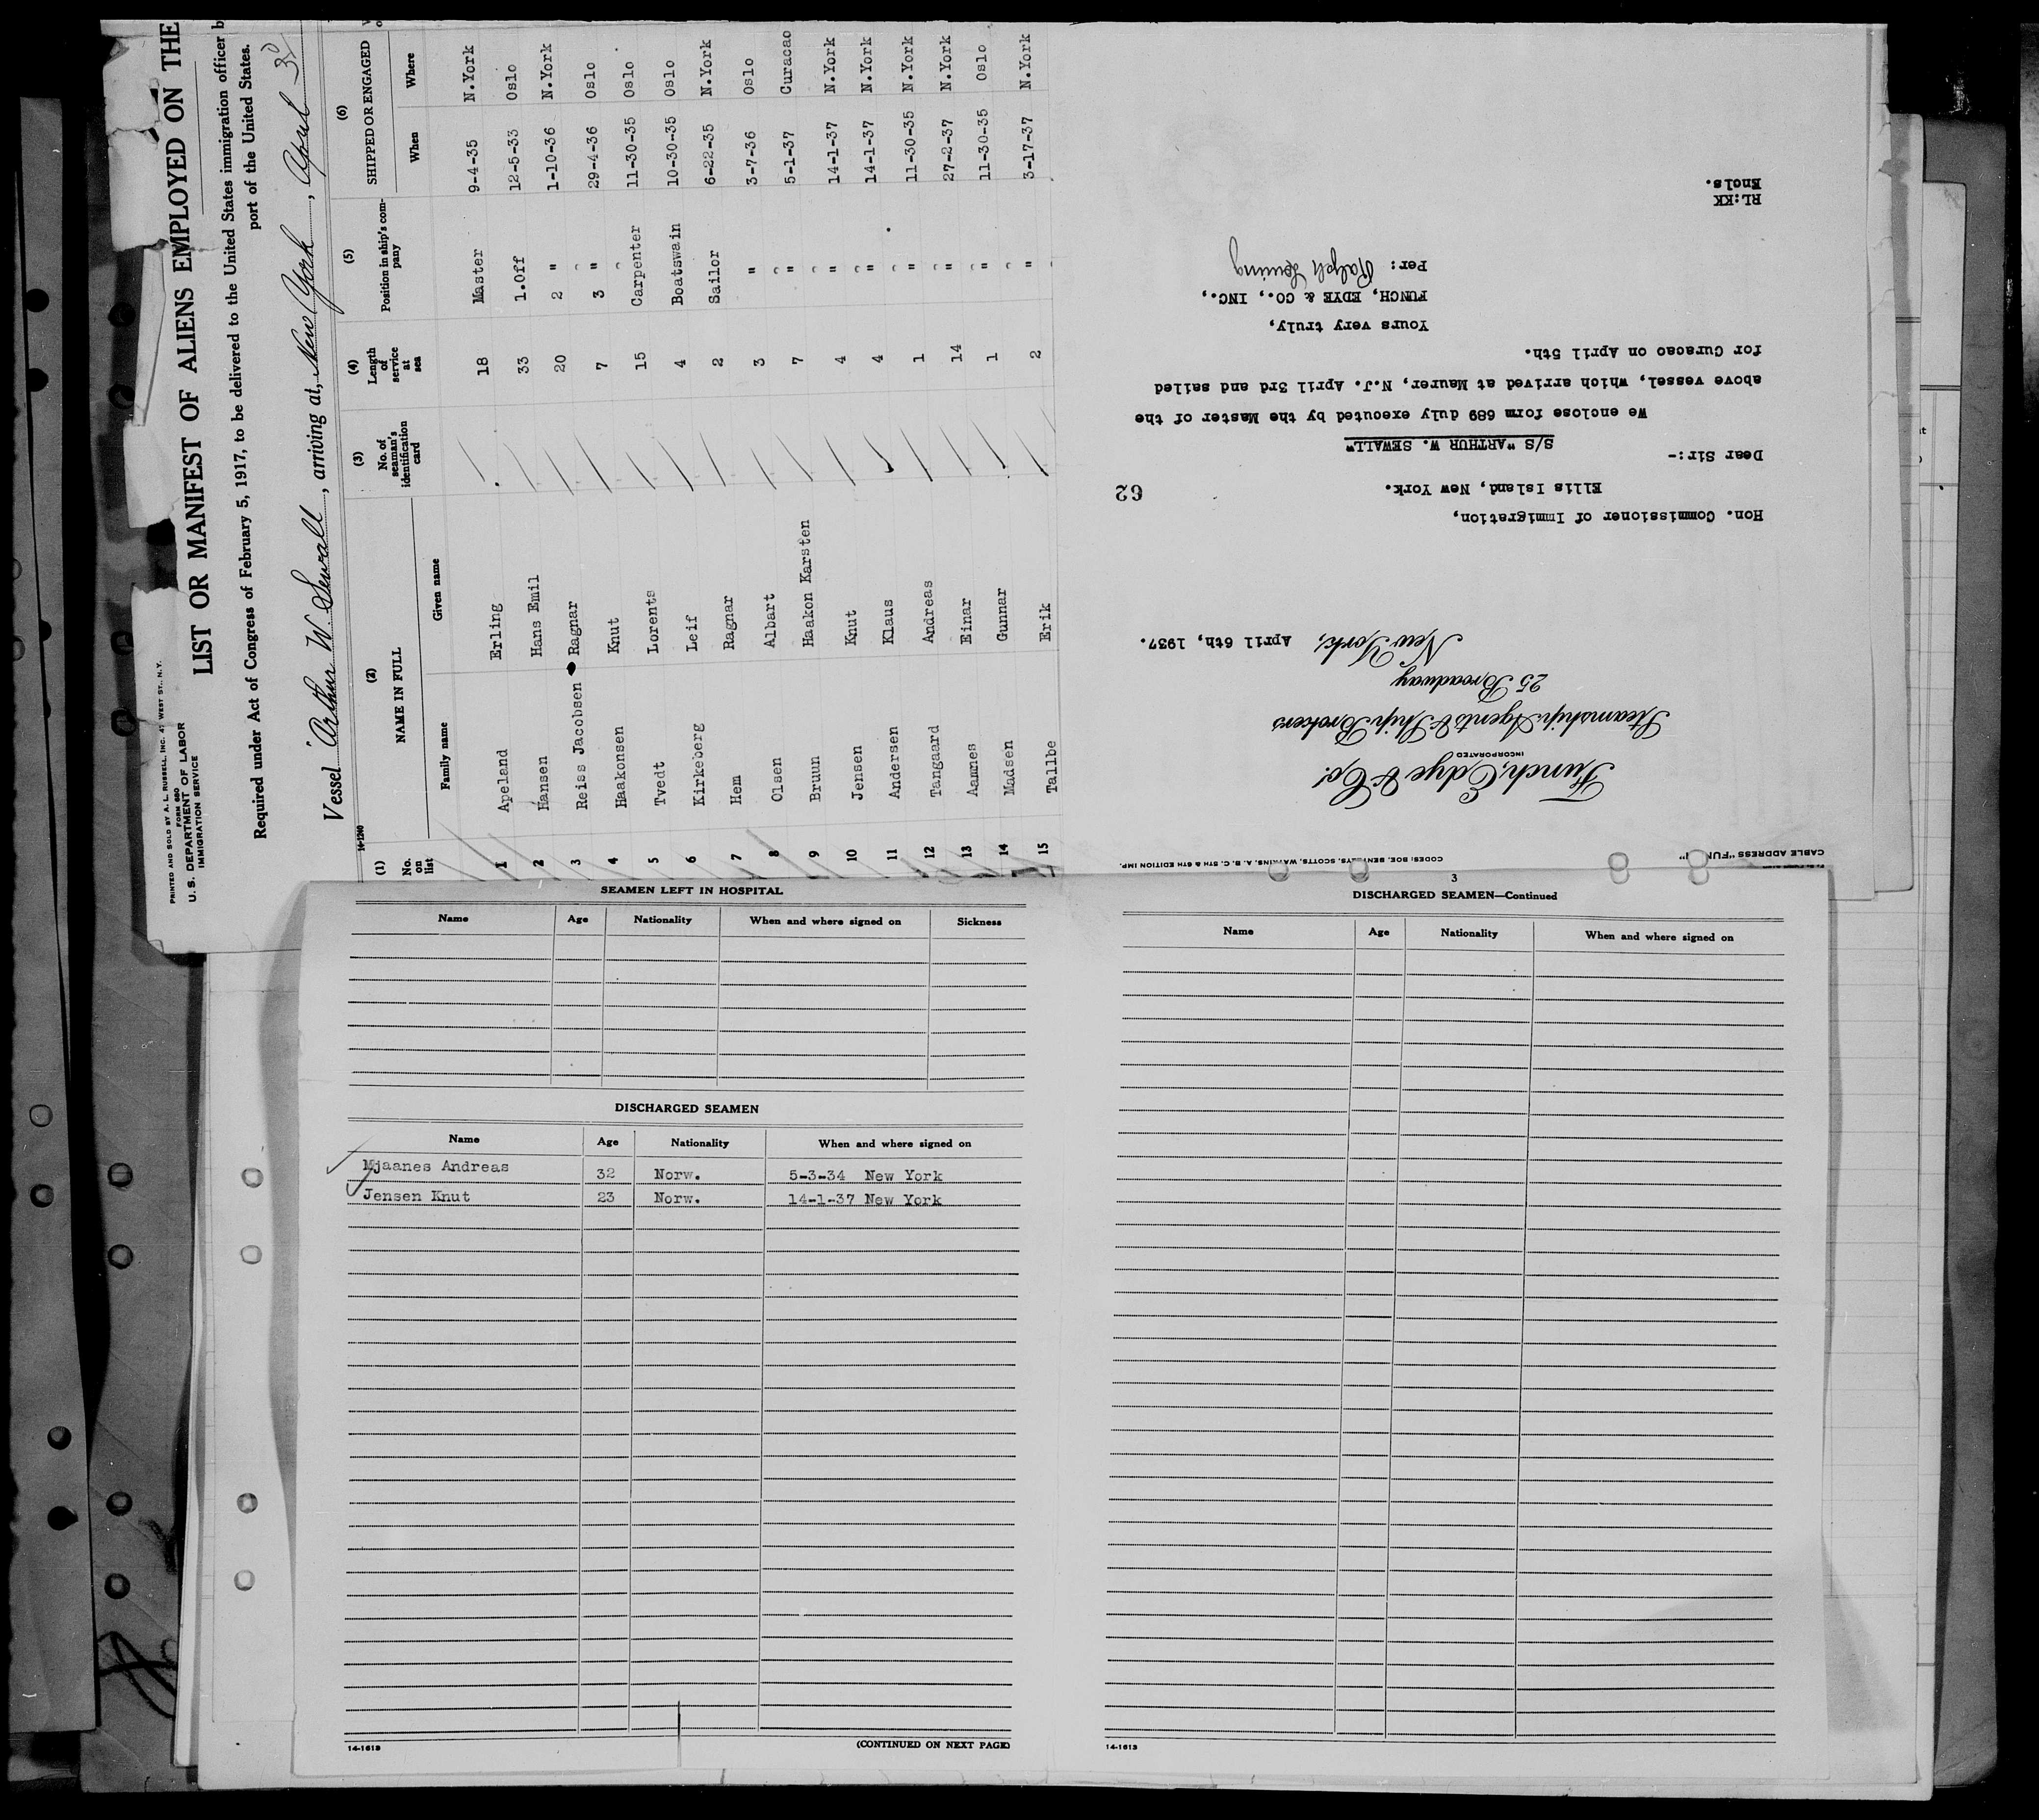 PRINTED AND SOLD BY A. L. RUSSELL, INC. 47 WEST ST., N.Y.
FORM 680
U. S. DEPARTMENT OF LABOR
IMMIGRATION SERVICE
LIST OR MANIFEST OF ALIENS EMPLOYED ON THE
Required under Act of Congress of February 5, 1917, to be delivered to the United States immigration officer b
port of the United States.
Vessel "Arthur W Sewall, arriving at, New York, April 3d
14-1240
(1) (2) (3) (4) (5) (6)
No. on list NAME IN FULL No. of seaman's identification card Length of service at sea Position in ship's company SHIPPED OR ENGAGED
Family name Given name When Where
1 Apeland Erling 18 Master 9-4-35 N.York
2 Hansen Hans Emil 33 1.Off 12-5-33 Oslo
3 Reiss Jacobsen Ragnar 20 2 " 1-10-36 N.York
4 Haakonsen Knut 7 3 " 29-4-36 Oslo
5 Tvedt Lorents 15 Carpenter 11-30-35 Oslo
6 Kirkeberg Leif 4 Boatswain 10-30-35 Oslo
7 Hem Ragnar 2 Sailor 6-22-35 N.York
8 Olsen Albart 3 " 3-7-36 Oslo
9 Bruun Haakon Karsten 7 " 5-1-37 Curacao
10 Jensen Knut 4 " 14-1-37 N.York
11 Andersen Klaus 4 " 14-1-37 N.York
12 Tangaard Andreas 1 " 11-30-35 N.York
13 Aamnes Einar 14 " 27-2-37 N.York
14 Madsen Gunnar 1 " 11-30-35 Oslo
15 Tallbe Erik 2 " 3-17-37 N.York
CABLE ADDRESS "FUN
CODES: BOE, BENTLEYS, SCOTTS, WATKINS, A. B. C. 5TH & 6TH EDITION IMP.
Funch, Edye & Co.
INCORPORATED
Steamship Agents & Ship Brokers
25 Broadway
New York, April 6th, 1937.
Hon. Commissioner of Immigration,
Ellis Island, New York.
62
Dear Sir:-
S/S "ARTHUR W. SEWALL"
We enclose form 689 duly executed by the Master of the
above vessel, which arrived at Maurer, N.J. April 3rd and sailed
for Curacao on April 5th.
Yours very truly,
FUNCH, EDYE & CO., INC.,
Per: Ralph
RL:KK
Encls.
SEAMEN LEFT IN HOSPITAL
Name Age Nationality When and where signed on Sickness
DISCHARGED SEAMEN
Name Age Nationality When and where signed on
Mjaanes Andreas 32 Norw. 5-3-34 New York
Jensen Knut 23 Norw. 14-1-37 New York
14-1613
(CONTINUED ON NEXT PAGE)
3
DISCHARGED SEAMEN—Continued
Name Age Nationality When and where signed on
14-1613